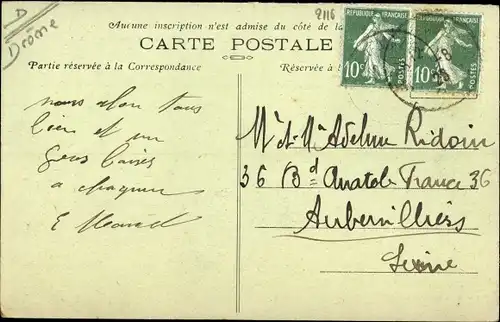 D
Drôme
2116
Aucune inscription n'est admise du côté de la
CARTE POSTALE
Partie réservée à la Correspondance
Réservée à
REPUBLIQUE FRANÇAISE
10c
POSTES
REPUBLIQUE FRANÇAISE
10c
POSTES
nous alon tous
bien et un
gros baiser
a chaqun
E
Mr et Mme Adelme Ridoin
36 Bd Anatole France 36
Aubervilliers
Seine